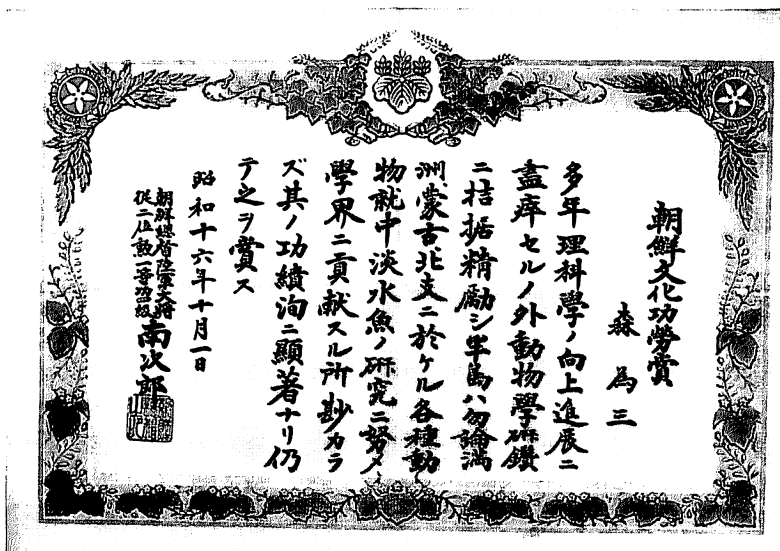 朝鮮文化功勞賞
森為三
多年理科學ノ向上進展ニ
盡瘁セルノ外動物學硏鑽
ニ拮据精勵シ半島ハ勿論滿
洲、蒙古、北支ニ於ケル各種動
物就中淡水魚ノ硏究ニ努メ
學界ニ貢献スル所尠カラ
ズ其ノ功績洵ニ顯著ナリ仍
テ之ヲ賞ス
昭和十六年十月一日
朝鮮總督陸軍大將
從二位勲一等功級
南次郎